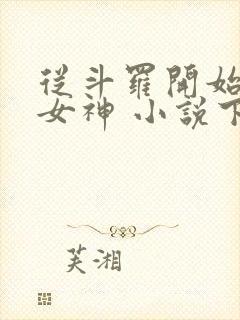 從斗羅開始
女神 小說下
芙湘